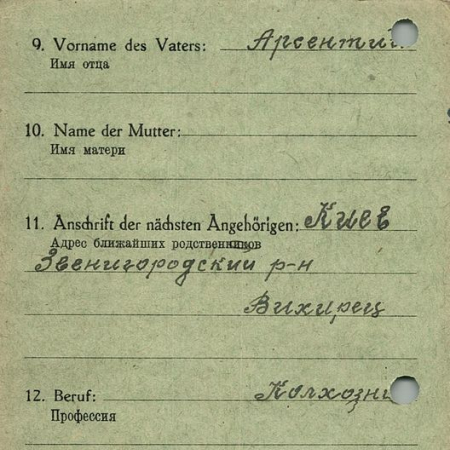 9. Vorname des Vaters: Арсентий
Имя отца
10. Name der Mutter:
Имя матери
11. Anschrift der nächsten Angehörigen: Киев
Адрес ближайших родственников
Звенигородский р-н
Вихирец
12. Beruf: Колхозни
Профессия